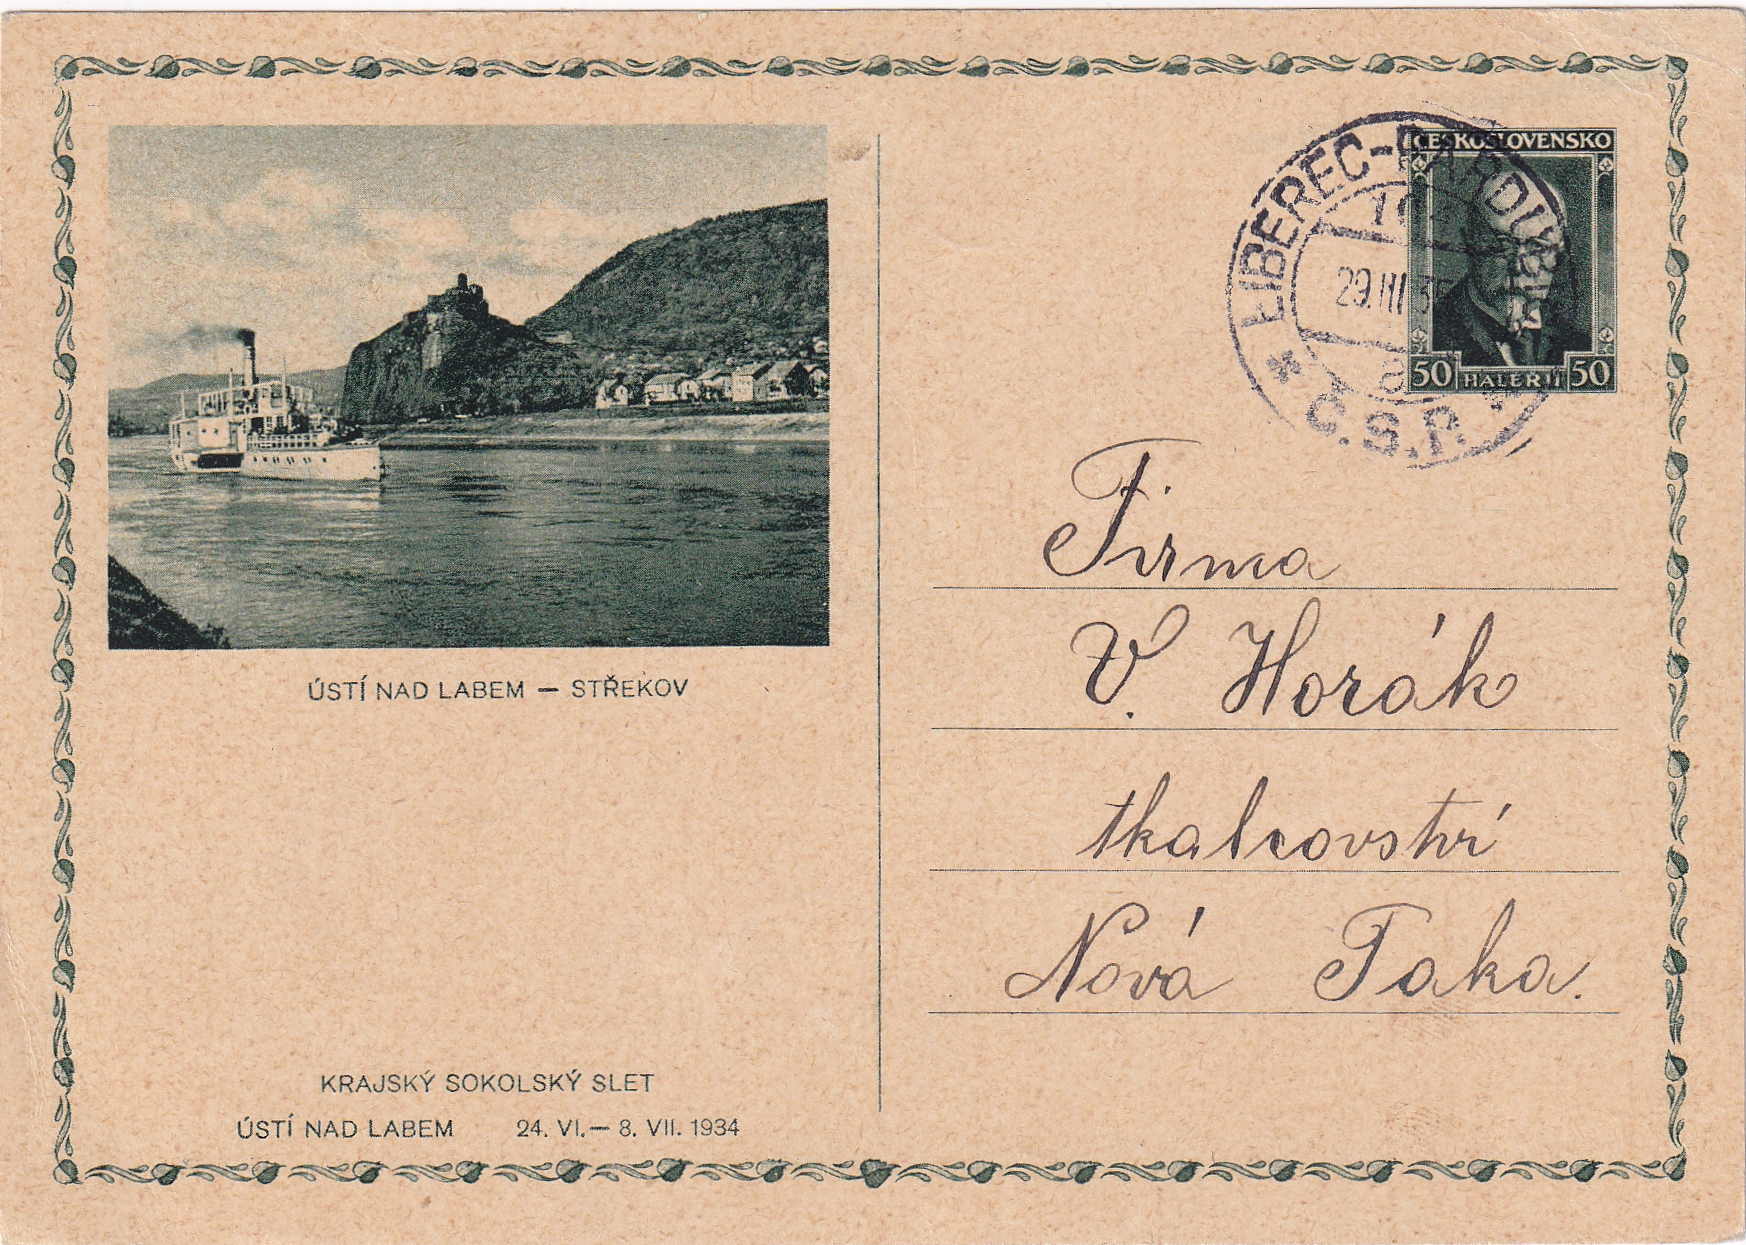 ÚSTÍ NAD LABEM – STŘEKOV
KRAJSKÝ SOKOLSKÝ SLET
ÚSTÍ NAD LABEM 24. VI.– 8. VII. 1934
ČESKOSLOVENSKO
50 HALÉŘŮ 50
LIBEREC-PARDUBICE
29.III
Č.S.R.
Firma
V. Horák
tkalcovství
Nová Paka.